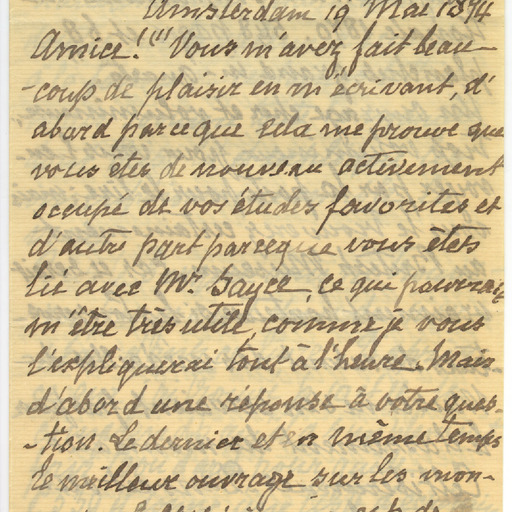 Amsterdam 19 Mai 1894
Amice! Vous m'avez fait beau-
-coup de plaisir en m'écrivant, d'
abord parceque cela me prouve que
vous êtes de nouveau activement
occupé de vos études favorites et
d'autre part parceque vous êtes
lié avec Mr. Sayce, ce qui pourrait
m'être très utile, comme je vous
l'expliquerai tout à l'heure. Mais
d'abord une réponse à votre ques-
-tion. Le dernier et en même temps
le meilleur ouvrage sur les mon-